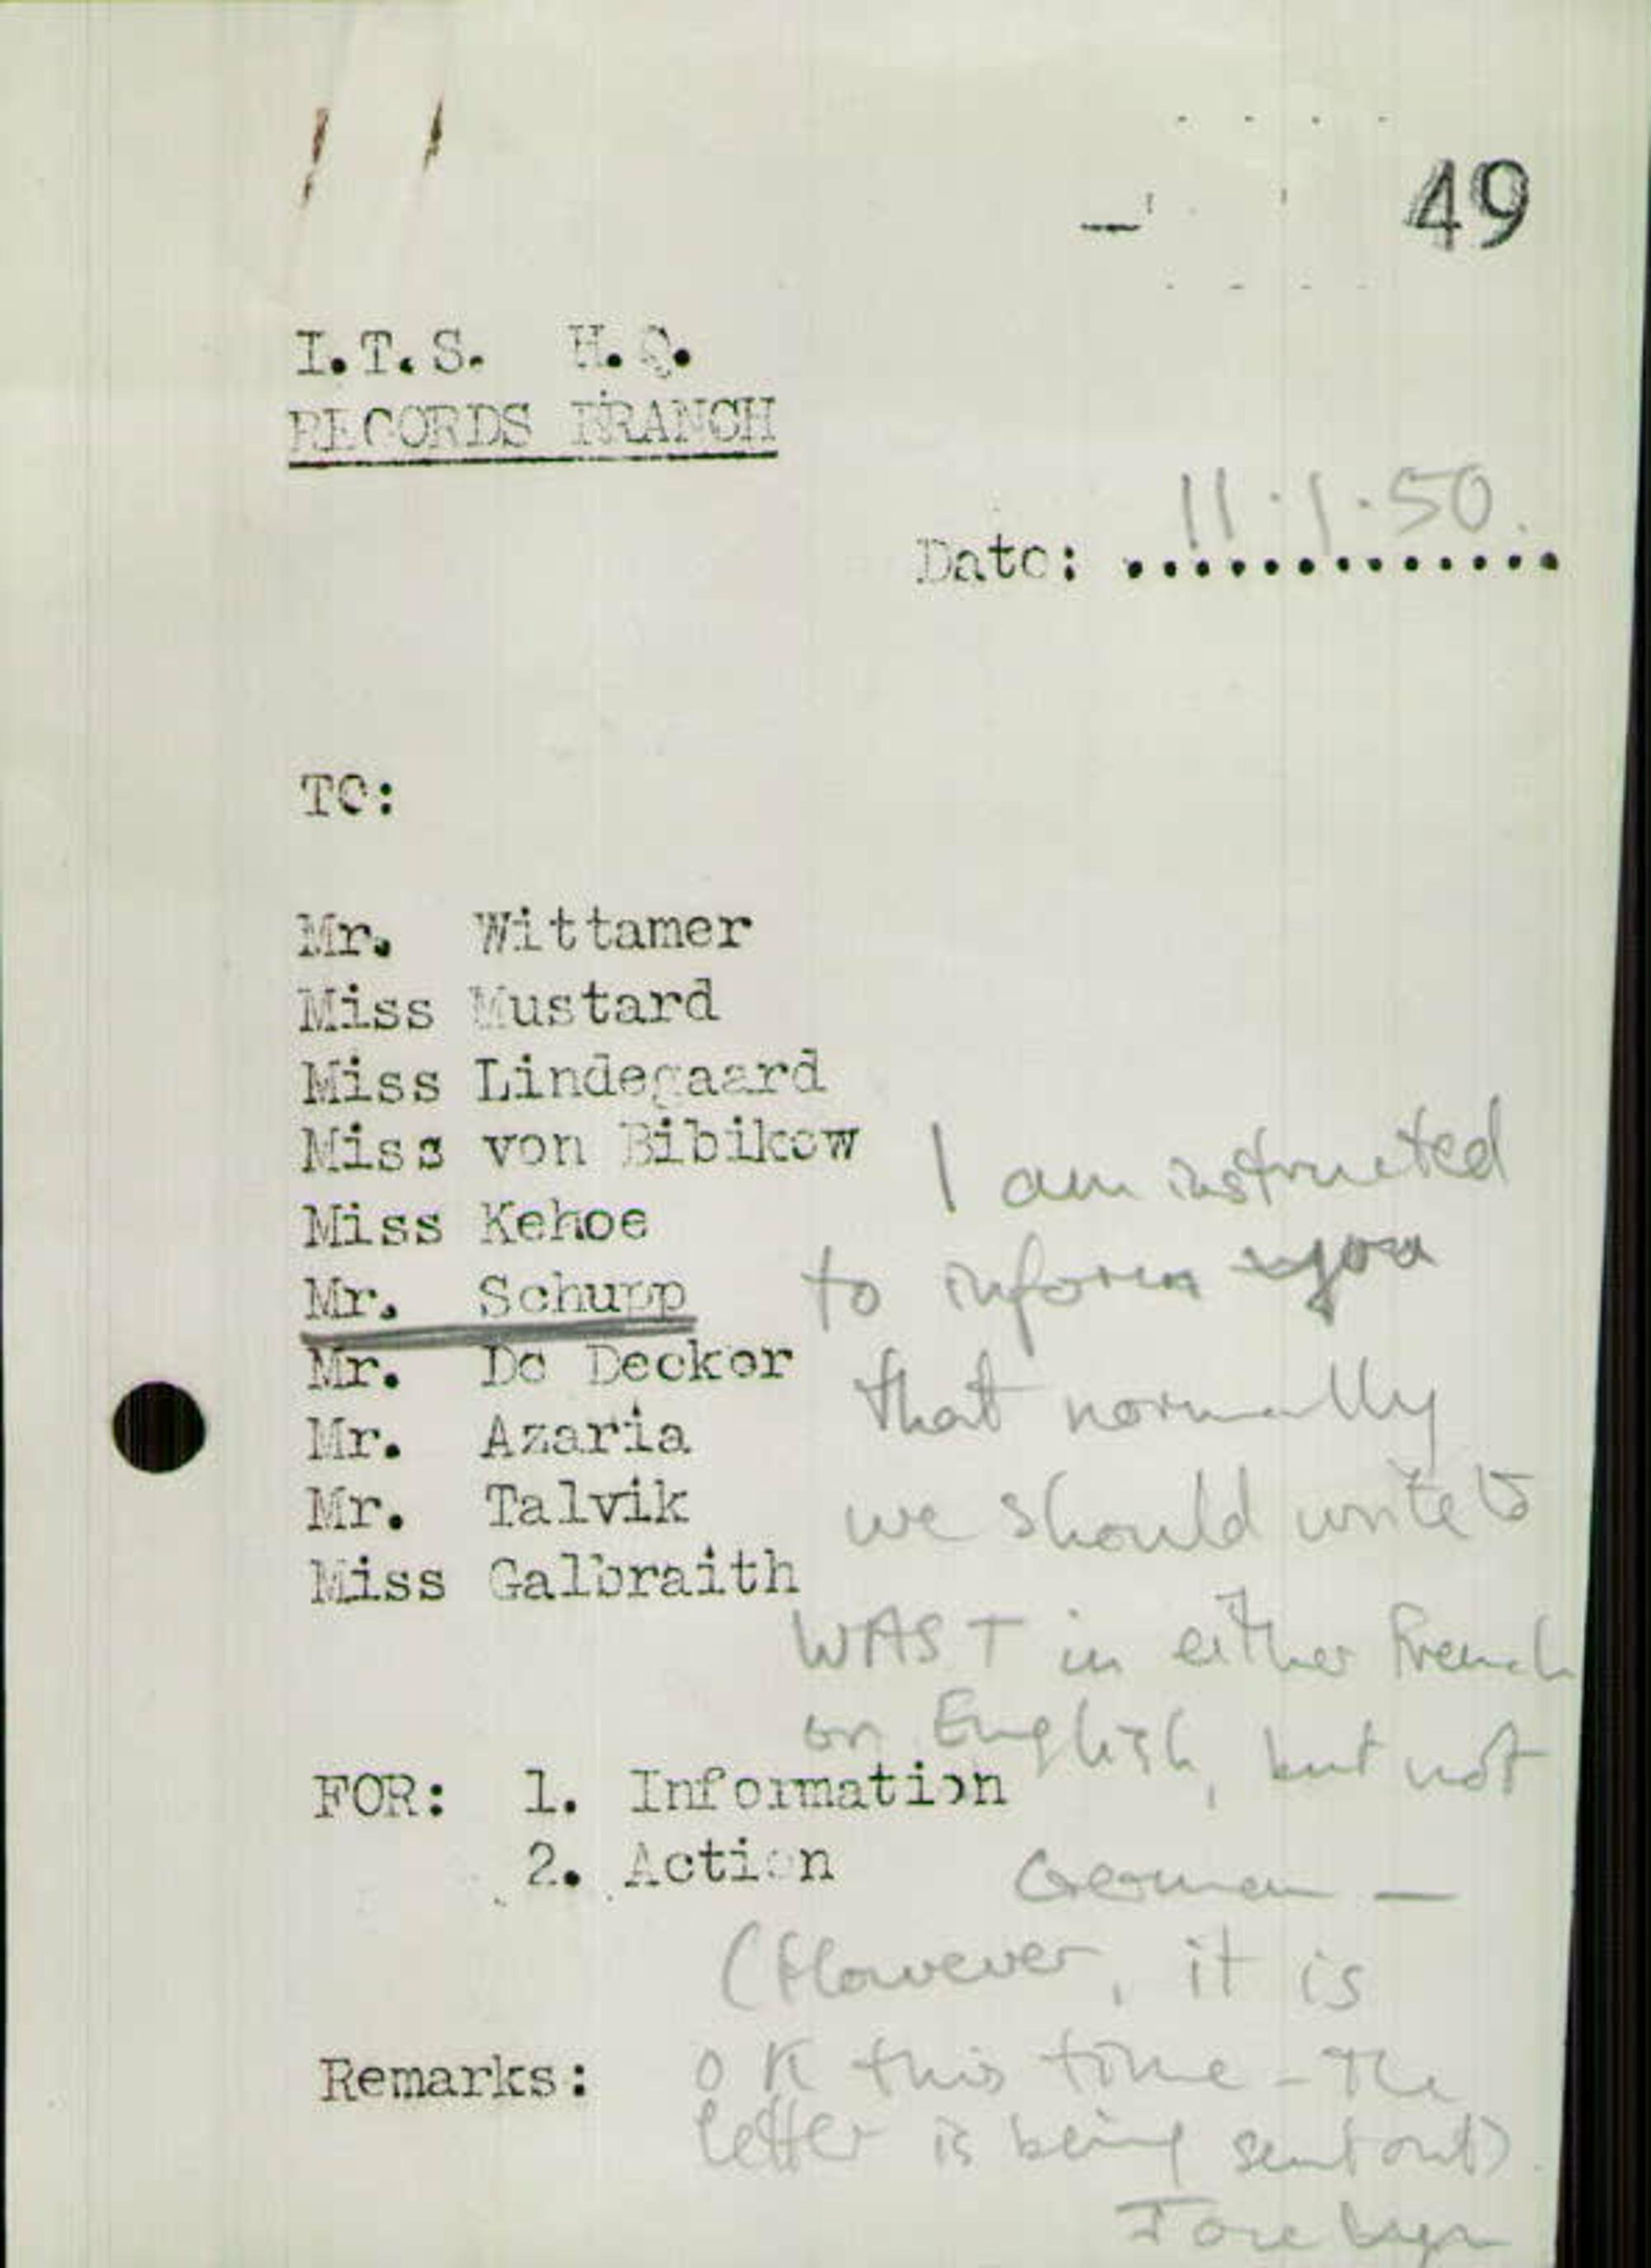 49
I.T.S. H.Q.
RECORDS BRANCH
Date: 11.1.50.
TO:
Mr. Wittamer
Miss Mustard
Miss Lindegaard
Miss von Bibikow
Miss Kehoe
Mr. Schupp
Mr. De Decker
Mr. Azaria
Mr. Talvik
Miss Galbraith
I am instructed
to inform you
that normally
we should write to
WAST in either French
or English, but not
German —
FOR: 1. Information
2. Action
(However, it is
OK this time - The
letter is being sent out)
Remarks: